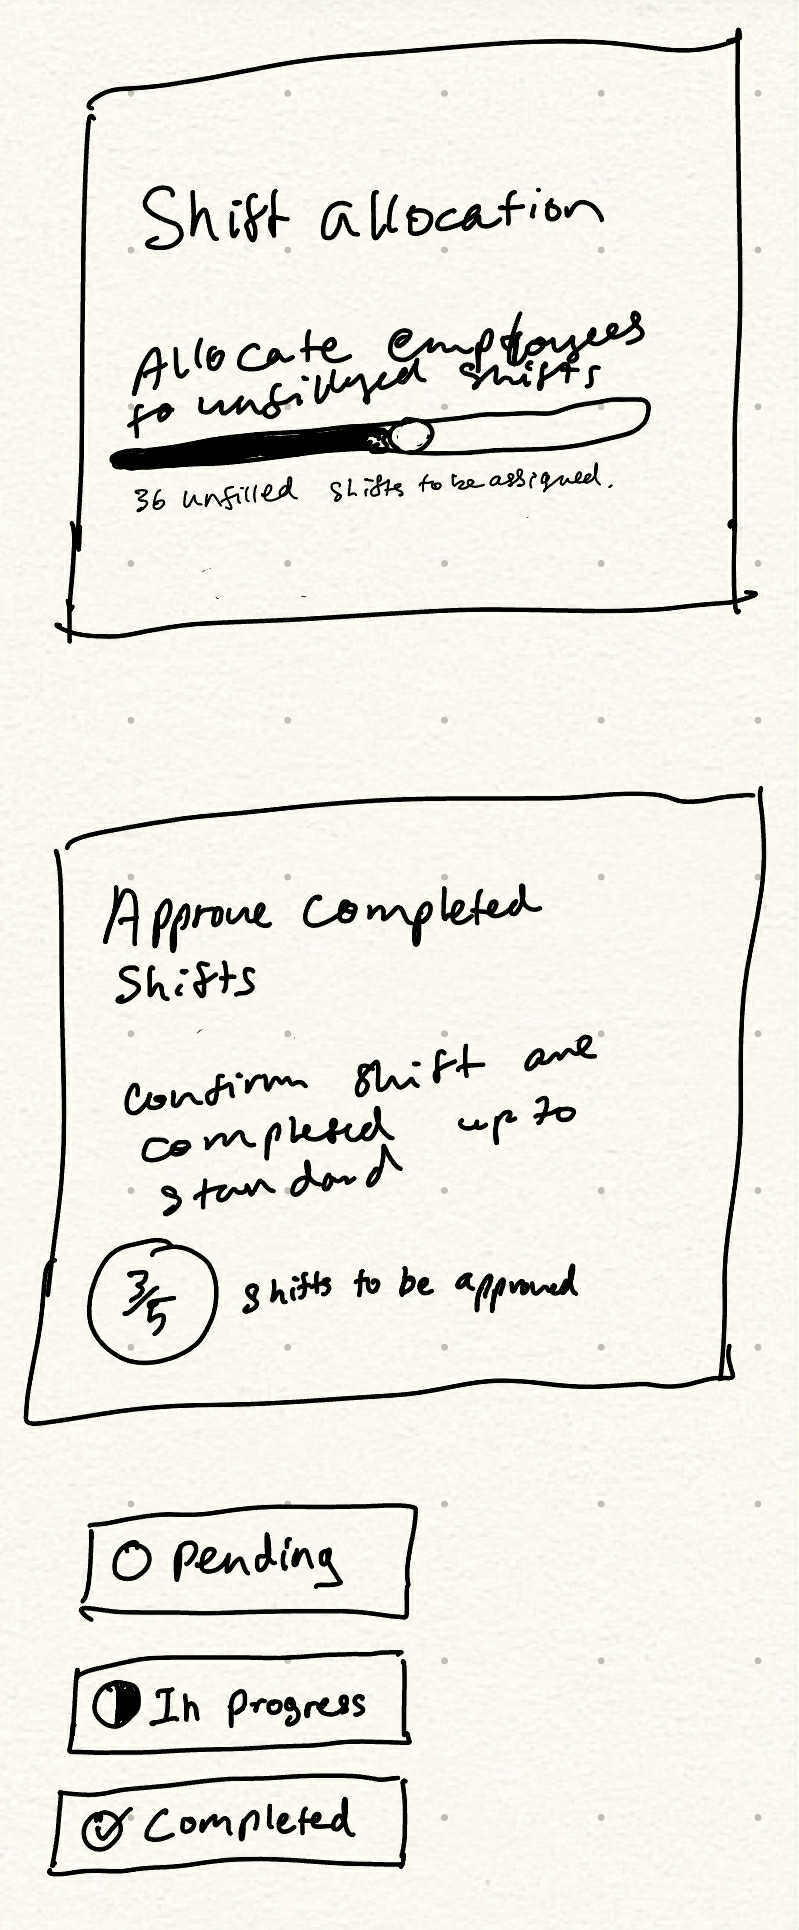 Shift allocation
Allocate employees
to unfillyed shifts
36 unfilled shifts to be assigned.
Approve completed
Shifts
confirm shift are
completed up to
standard
3/5 shifts to be approved
Pending
In progress
Completed